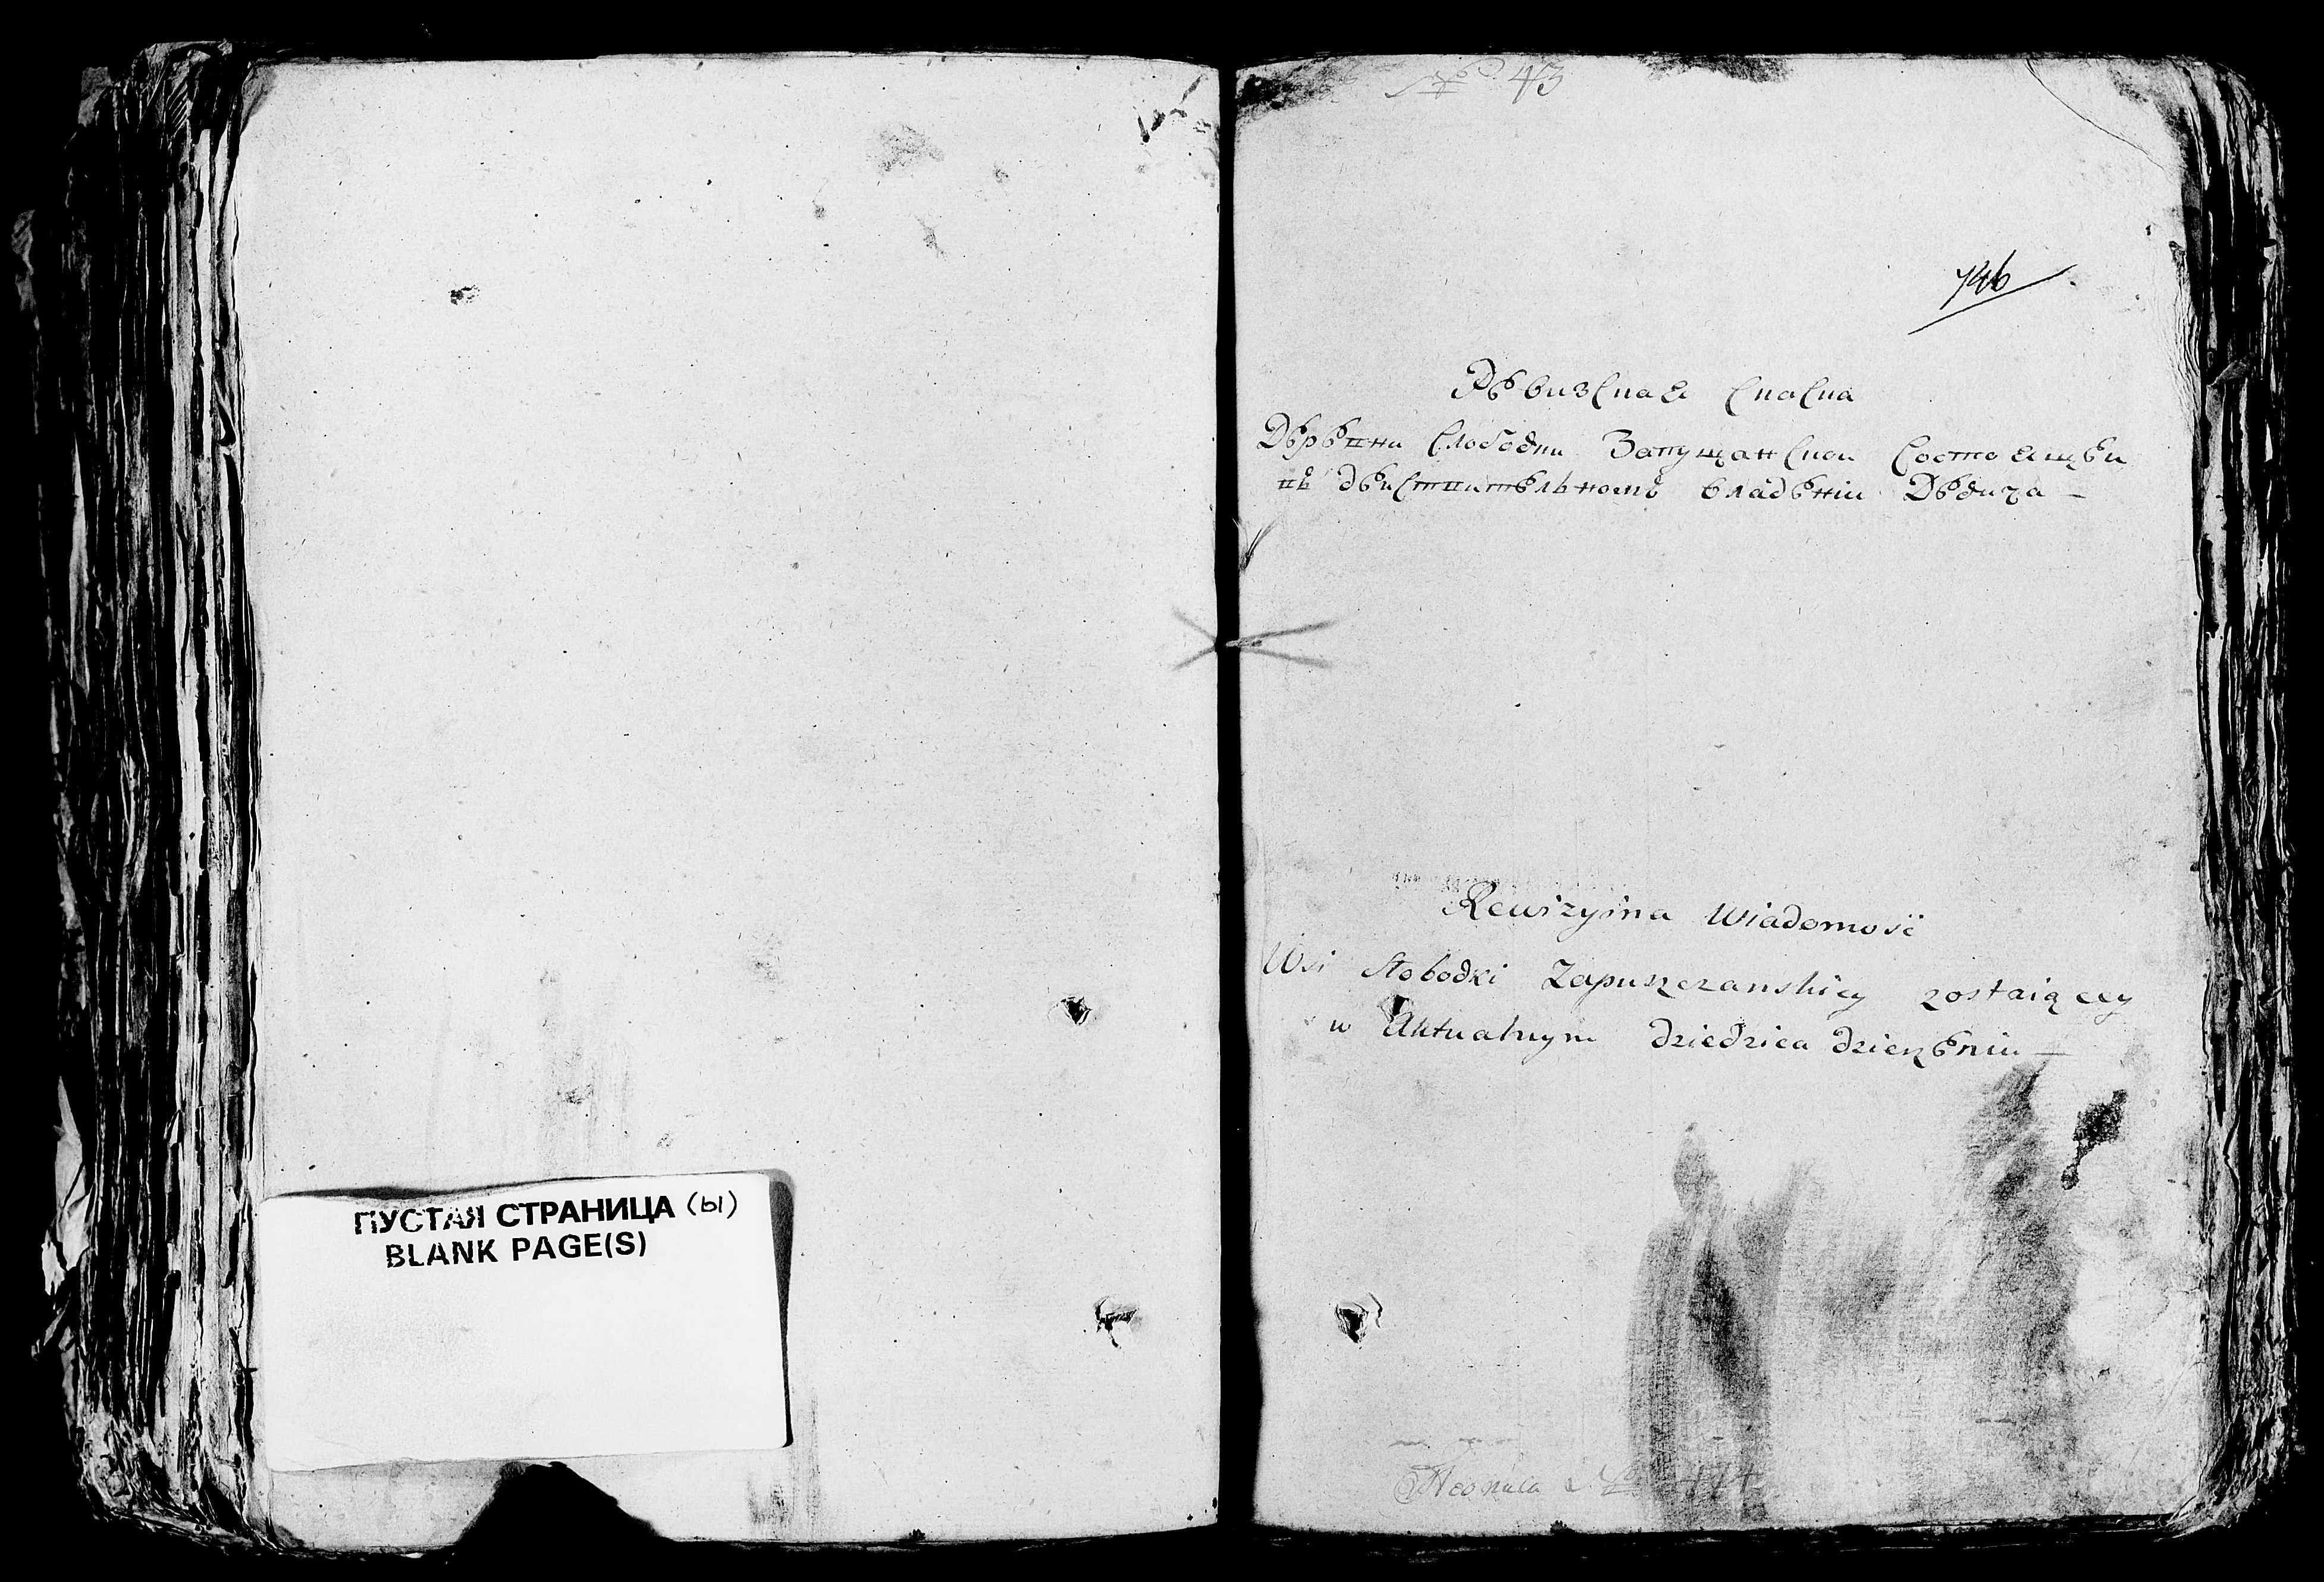 ПУСТАЯ СТРАНИЦА (ы)
BLANK PAGE(S)
№ 43
746
Ревизская Скаска
Деревни Слободки Запущанской Состоящей
въ действительномъ владении Дедича —
Rewizyina Wiadomość
Wsi Słobodki Zapuszczanskiey zostaiącey
w Aktualnym dziedzica dzierżeniu —